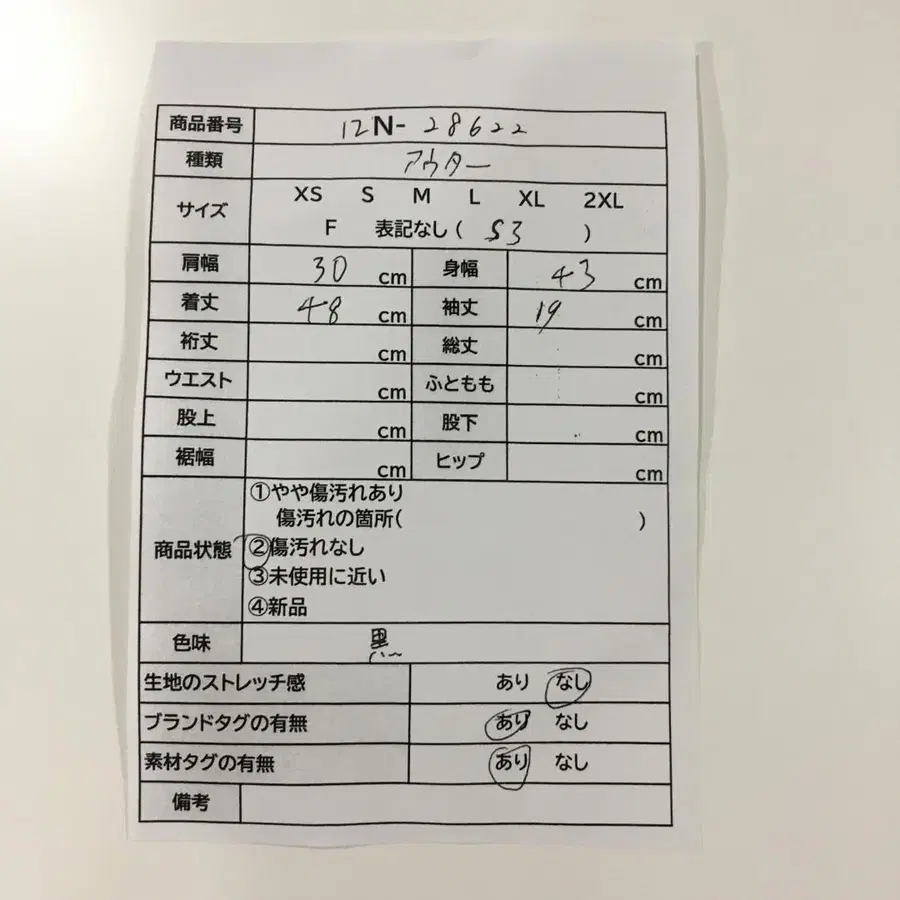 商品番号 12N-28622
種類 アウター
サイズ XS S M L XL 2XL
F 表記なし( S3 )
肩幅 30 cm 身幅 43 cm
着丈 48 cm 袖丈 19 cm
裄丈 cm 総丈 cm
ウエスト cm ふともも cm
股上 cm 股下 cm
裾幅 cm ヒップ cm
①やや傷汚れあり
傷汚れの箇所( )
商品状態 ②傷汚れなし
③未使用に近い
④新品
色味 黒
生地のストレッチ感 あり なし
ブランドタグの有無 あり なし
素材タグの有無 あり なし
備考